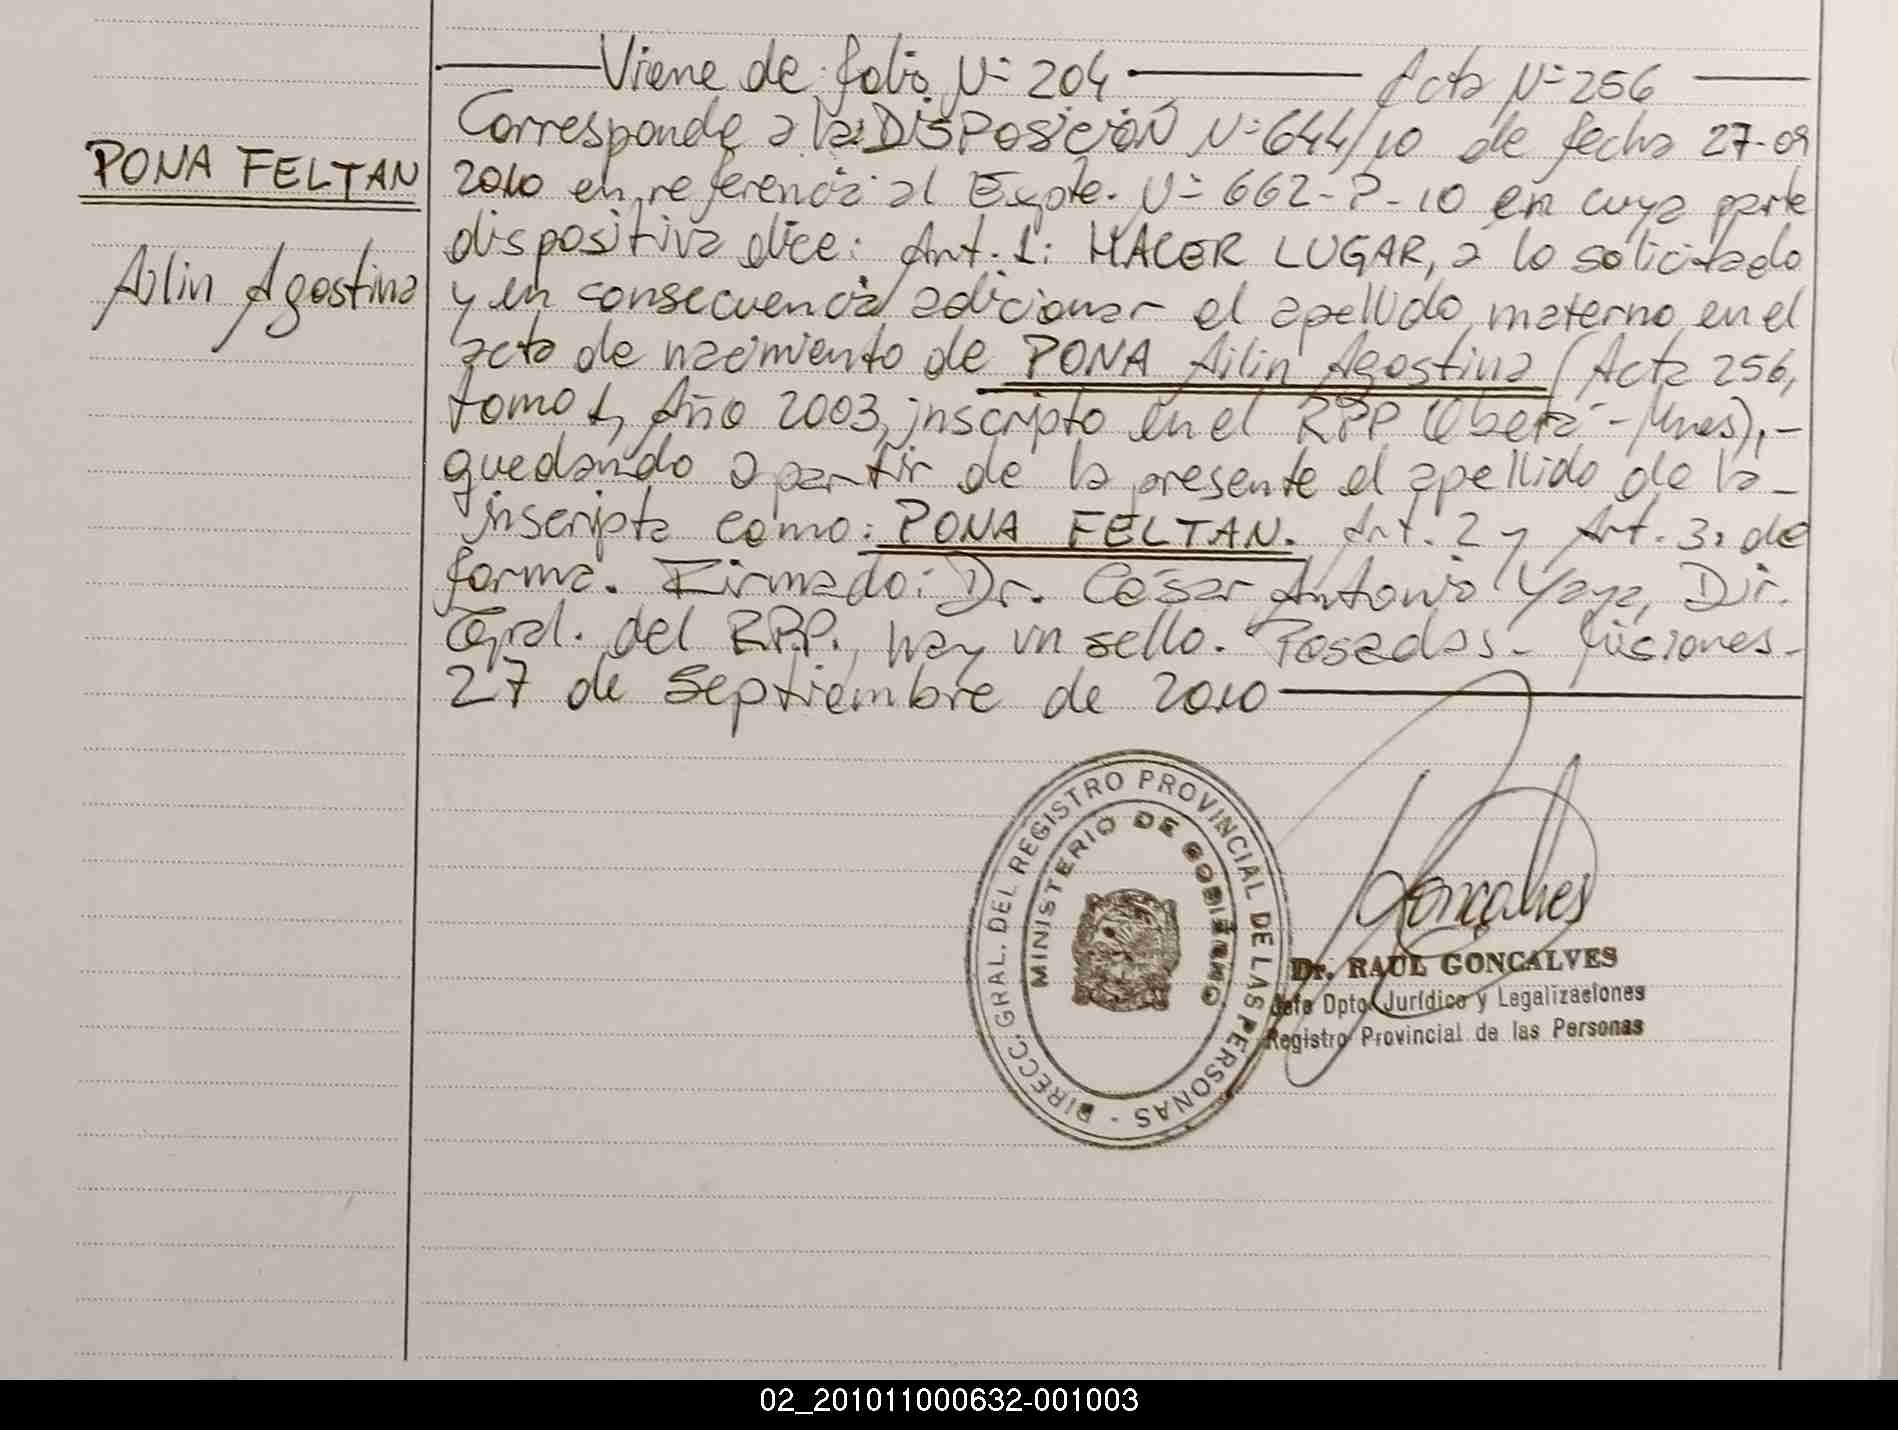 Viene de folio Nº 204 Acta Nº 256
Corresponde a la: DISPOSICIÓN Nº 644/10 de fecha 27-09
PONA FELTAN
2010 en referencia al Expte. Nº 662-P-10 en cuya parte
dispositiva dice: Art. 1: HACER LUGAR, a lo solicitado
Ailin Agostina
y en consecuencia adicionar el apellido materno en el
acta de nacimiento de PONA Ailin Agostina (Acta 256,
tomo 1, Año 2003, inscripto en el RPP (Oberá - Mnes),-
quedando a partir de la presente el apellido de la -
inscripta como: PONA FELTAN. Art. 2 y Art. 3: de
forma. Firmado: Dr. César Antonio Yaya, Dir.
Gral. del RPP., hay un sello. Posadas - Misiones -
27 de Septiembre de 2010
DIRECC. GRAL. DEL REGISTRO PROVINCIAL DE LAS PERSONAS -
MINISTERIO DE GOBIERNO
Goncalves
Dr. RAUL GONCALVES
Jefe Dpto. Jurídico y Legalizaciones
Registro Provincial de las Personas
02_201011000632-001003